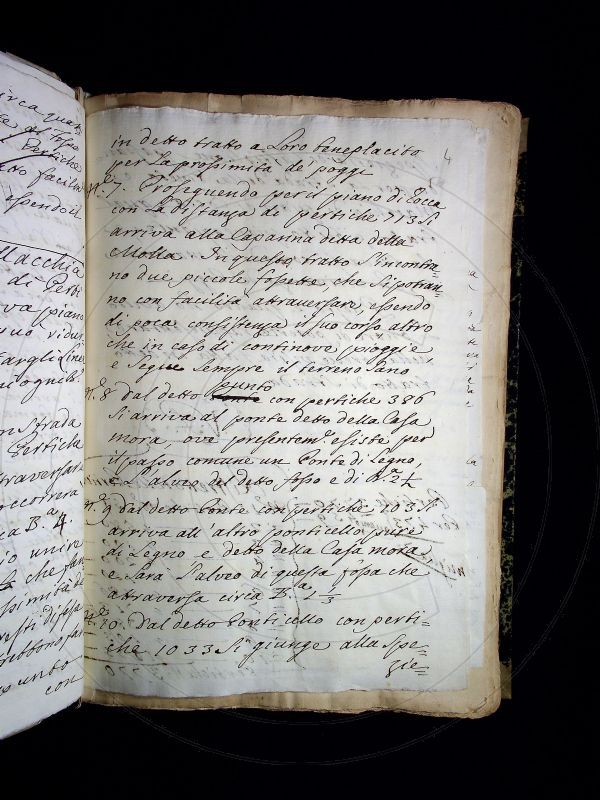 4
in detto tratto a Loro beneplacito
per La prossimità de' poggi
N.º 7 Proseguendo per il piano di Rocca
con La distanza di pertiche 713 Si
arriva alla Capanna detta della
Molla In questo tratto S'incontra-
no due piccole fossette, che Si potran-
no con facilità attraversare, essendo
di poca consistenza il suo corso altro
che in caso di continove pioggie
e Segue Sempre il terreno Sano
N.º 8 dal detto punto con pertiche 386
Si arriva al ponte detto della Casa
mora, ove presentem.e esiste per
il passo comune un Ponte di Legno,
e L'alveo del detto fosso e di B.a 2½
N.º 9 dal detto Ponte con pertiche 103 Si
arriva all'altro ponticello pure
di Legno e detto della Casa mora,
e Sara L'alveo di questa fossa che
attraversa circa B.a 1⅓
N.º 10 Dal detto Ponticello con perti-
che 1033 Si giunge alla Spe-
zie=
circa
facilm
essendo il
Macchia
di Perti
va piano
ridur
Strada
Pertiche
traversara
occorrera
B.a 4.
unire
che fan
potrebbono far
punto
con